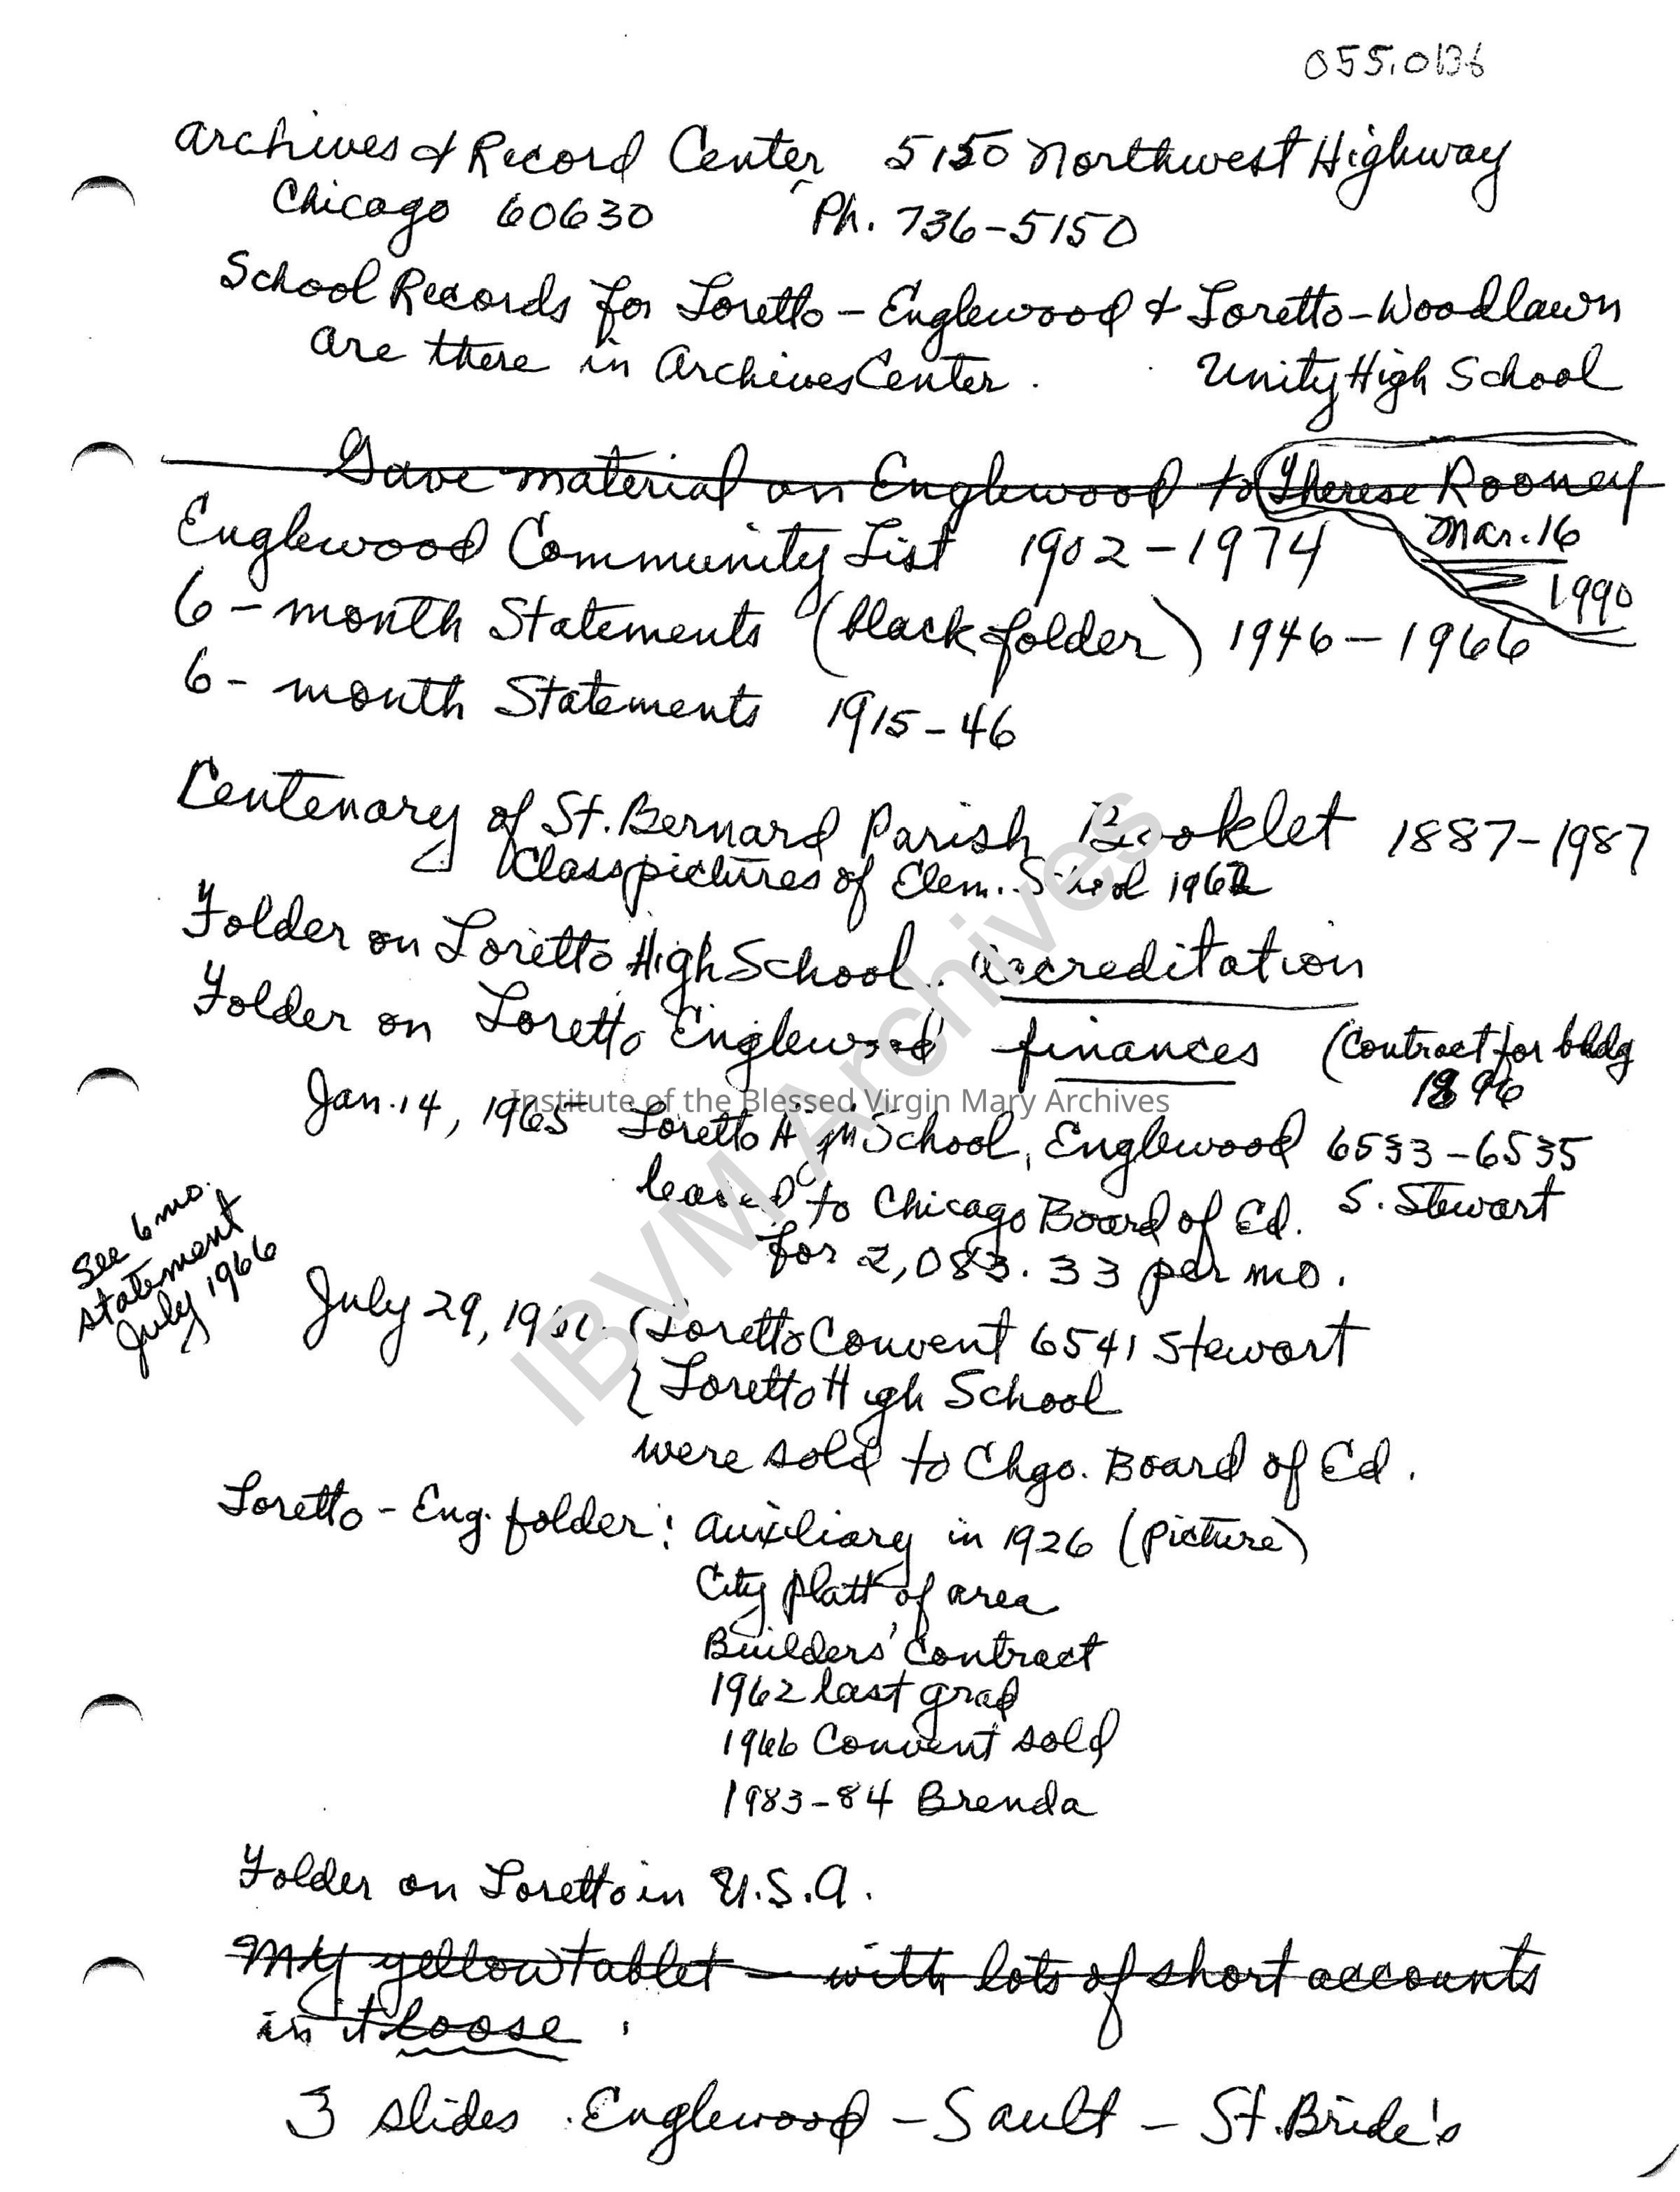 055.0136
Archives & Record Center, 5150 Northwest Highway
Chicago 60630 Ph. 736-5150
School Records for Loretto-Englewood & Loretto-Woodlawn
are there in Archives Center. Unity High School
Gave material on Englewood to Therese Rooney
Mar. 16
1990
Englewood Community List 1902-1974
6-month Statements (black folder) 1946-1966
6-month Statements 1915-46
Centenary of St. Bernard Parish Booklet 1887-1987
Class pictures of Elem. School 1962
Folder on Loretto High School. Accreditation
Folder on Loretto Englewood finances (Contract for bldg
1896
Jan. 14, 1965 Loretto High School, Englewood 6533-6535
S. Stewart
leased to Chicago Board of Ed.
for 2,083.33 per mo.
See 6 mo.
statement
July 1966
July 29, 1966 {Loretto Convent 6541 Stewart
{Loretto High School
were sold to Chgo. Board of Ed.
Loretto-Eng. folder: Auxiliary in 1926 (picture)
City platt of area
Builders' Contract
1962 last grad
1966 Convent sold
1983-84 Brenda
Folder on Loretto in U.S.A.
My yellow tablet - with lots of short accounts
in it loose.
3 slides. Englewood - Sault - St. Bride's
Institute of the Blessed Virgin Mary Archives
IBVM Archives